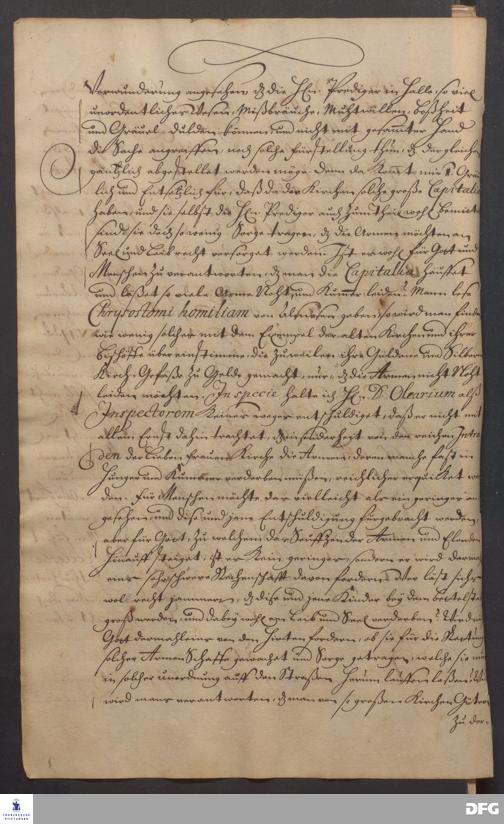 Verwunderung angesehen, dz die Hln: Prediger in Halle, so viel
unordentliches Wesen, Mißbräuche, Muhtwillen, Boßheit
und Gräuel dulden können, und nicht mit gesamter Hand
die Sache angreiffen, noch solche fürstellung thun, dz dergleichen
gäntzlich abgestellet werden möge. Denn da kommt mir
lich und Entsetzlich für, daß da die Kirchen solche große Capitalia
haben, und sie selbst die Hln: Prediger auch zum theil wohl bemittelt
sind, sie doch so wenig Sorge tragen, dz die Armen möchten an
Seel und Leib recht versorget werden. Ist er wohl für Gott und
Menschen zu verantworten, dz man die Capitalia häuffet
und läßet so viele Arme Noht und Kummer leiden? Mann lese
Chrysostomi homiliam von Almosen geben, so wird man finden
wie wenig solches mit dem Exempel der alten Kirchen und ihrer
Bischöffe übereinstimme, die zuweilen ihre Güldene und Silberne
Kirch-Gefäße zu Gelde gemacht, nur dz die Armen nicht Noht
leiden möchten. In specie halte ich Hln: D. Olearium alß
Inspectorem keines weges entschuldiget, daß er nicht mit
allem Ernst dahin trachtet, dz insonderheit von den reichen
den der Lieben Frauen Kirche die Armen, deren manche fast in
Hunger und Kummer verderben müßen, reichlicher erquicket
den. Für Menschen möchte, der vielleicht als ein geringes an
gesehen, und diese und jene Entschuldigung fürgebracht werden,
aber für Gott, zu welchem der Seuffzen der Armen und Elenden
hinauff steiget, ist er kein geringes, sondern er wird dermahl
eins sehr schwere Rechenschafft davon fordern. Wer läst sichs
woll recht jammern, dz diese und jene Kinder bey dem bettelstab
groß werden, und dabey wohl an Leib und Seel verderben? Wird
Gott dermahleins von den Hirten fordern, ob sie für die Rettung
solcher Armen Schaffe gewachet und Sorge getragen, welche sie
in solcher unordnung auff den Straßen herum lauffen laßen?
wird mans verantworten, dz man von so großen Kirchen Gütern
zu der-
FRANCKESCHE
STIFTUNGEN
DFG